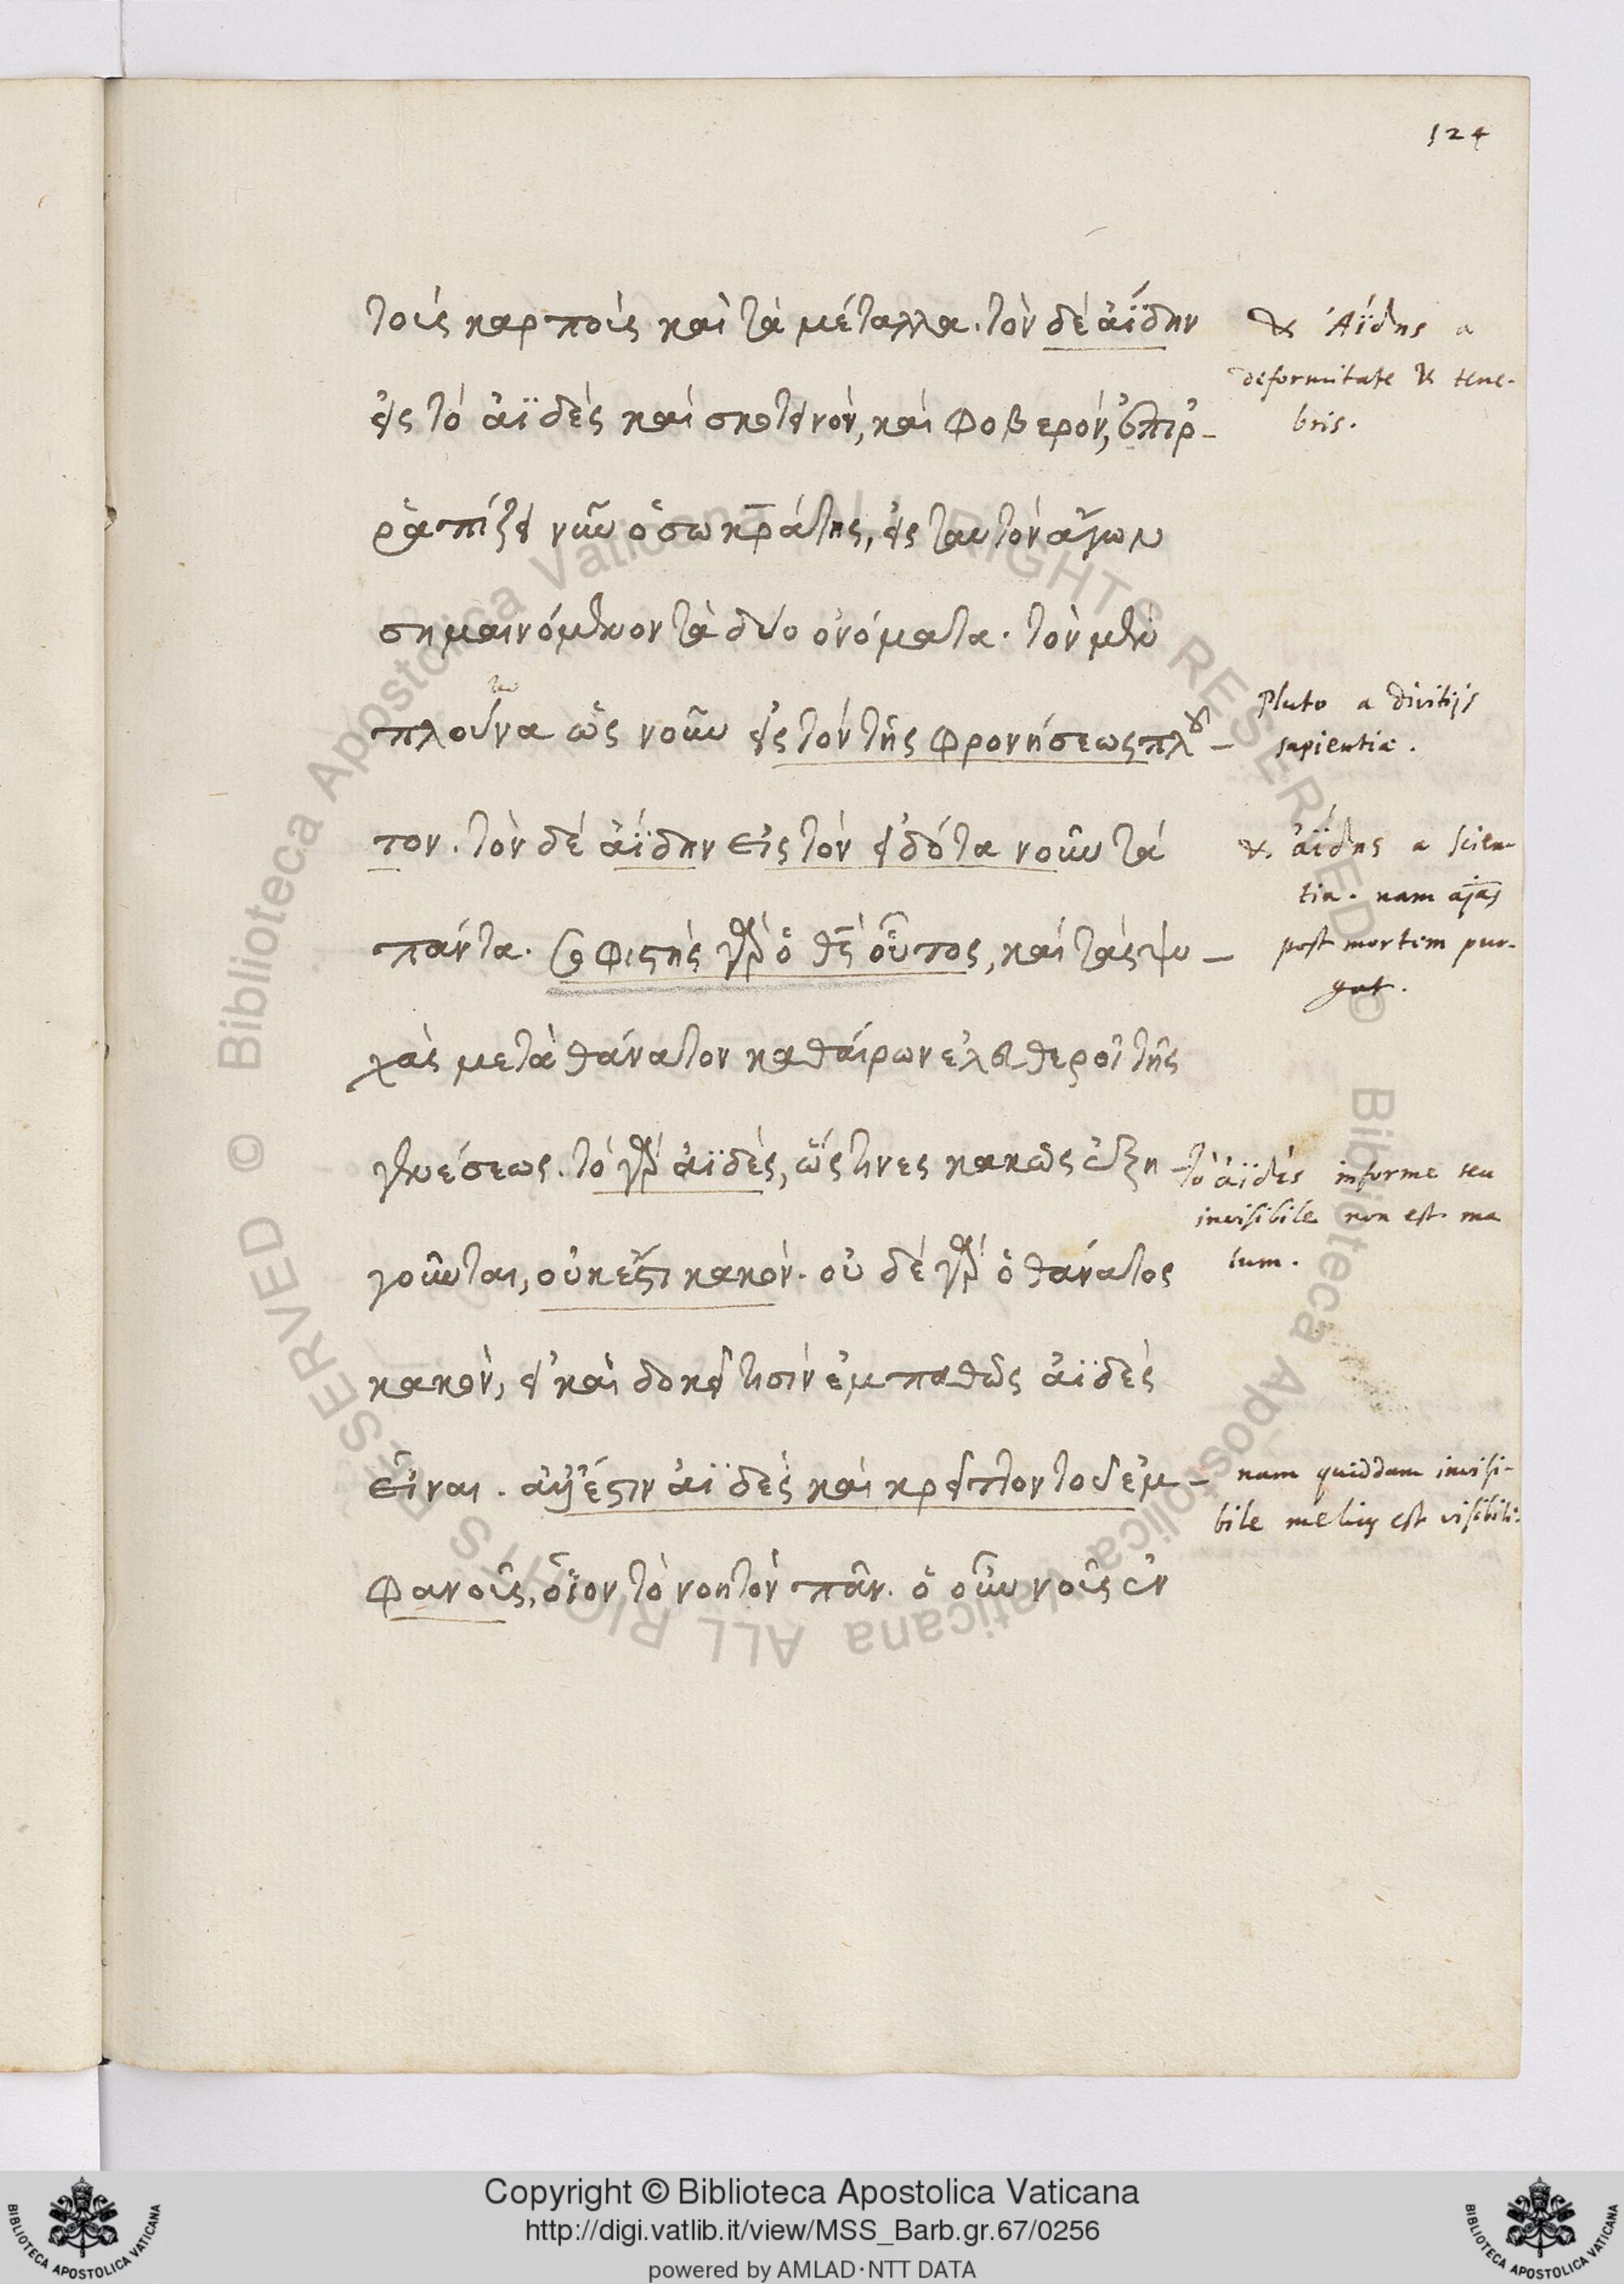 124
τοὶς καρποὶς καὶ τὰ μέταλλα. τὸν δὲ ἀΐδην
εἰς τὸ ἀϊδὲς καὶ σκοτεινὸν, καὶ φοβερὸν, ἐπιρ-
ραπίζει νῦν ὁ σωκράτης, εἰς ταυτὸν ἄγων
σημαινόμενον τὰ δύο ὀνόματα. τὸν μὲν
τω
πλούνα ὡς νοῦν εἰς τὸν τῆς φρονήσεως πλου-
τον. τὸν δὲ ἀΐδην εἰς τὸν εἰδότα νοῦν τὰ
πάντα. σοφιστὴς γὰρ ὁ θς οὗτος, καὶ τὰς ψυ-
χὰς μετὰ θάνατον καθαίρων ἐλευθεροῖ τῆς
γενέσεως. τὸ γὰρ ἀϊδὲς, ὥς τινες κακῶς ἐξη-
γοῦνται, οὐκ ἔστι κακὸν. οὐ δὲ γὰρ ὁ θάνατος
κακὸν, εἰ καὶ δοκεῖ τισὶν ἐμπαθῶς ἀϊδὲς
εἶναι. ἀλλ' ἔστιν ἀϊδὲς καὶ κρεῖττον τοῦ ἐμ-
φανοῦς, οἷον τὸ νοητὸν πᾶν. ὁ οὖν νοῦς ἐν
& Ἀΐδης a
deformitate & tene-
bris.
Pluto a divitijs
sapientiæ.
& ἀΐδης a scien-
tia. nam aias
post mortem pur-
gat.
τὸ ἀϊδὲς informe seu
invisibile non est ma
lum.
nam quiddam invisi-
bile melius est visibili.
Copyright © Biblioteca Apostolica Vaticana
http://digi.vatlib.it/view/MSS_Barb.gr.67/0256
powered by AMLAD·NTT DATA
BIBLIOTECA APOSTOLICA VATICANA
BIBLIOTECA APOSTOLICA VATICANA
© Biblioteca Apostolica Vaticana ALL RIGHTS RESERVED
© Biblioteca Apostolica Vaticana ALL RIGHTS RESERVED